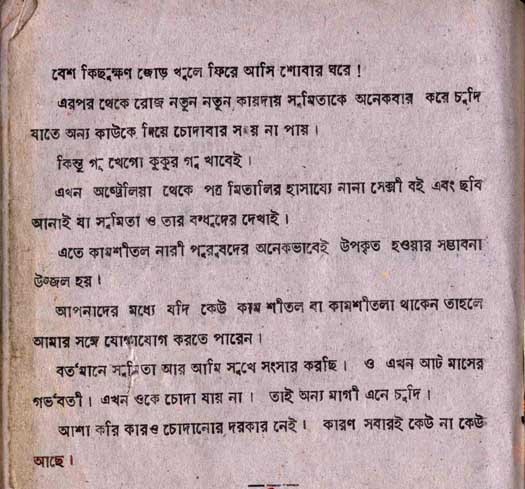 বেশ কিছুক্ষণ জোড় খুলে ফিরে আসি শোবার ঘরে !
এরপর থেকে রোজ নতুন নতুন কায়দায় সুমিতাকে অনেকবার করে চুদি
যাতে অন্য কাউকে দিয়ে চোদাবার সময় না পায় ।
কিন্তু গু খেগো কুকুর গু খাবেই ।
এখন অস্ট্রেলিয়া থেকে পত্র মিতালির হাসায্যে নানা সেক্সী বই এবং ছবি
আনাই যা সুমিতা ও তার বন্ধুদের দেখাই ।
এতে কামশীতল নারী পুরুষদের অনেকভাবেই উপকৃত হওয়ার সম্ভাবনা
উজ্জল হয় ।
আপনাদের মধ্যে যদি কেউ কাম শীতল বা কামশীতলা থাকেন তাহলে
আমার সঙ্গে যোগাযোগ করতে পারেন ।
বর্তমানে সুমিতা আর আমি সুখে সংসার করছি । ও এখন আট মাসের
গর্ভবতী । এখন ওকে চোদা যায় না । তাই অন্য মাগী এনে চুদি ।
আশা করি কারও চোদানোর দরকার নেই । কারণ সবারই কেউ না কেউ
আছে ।